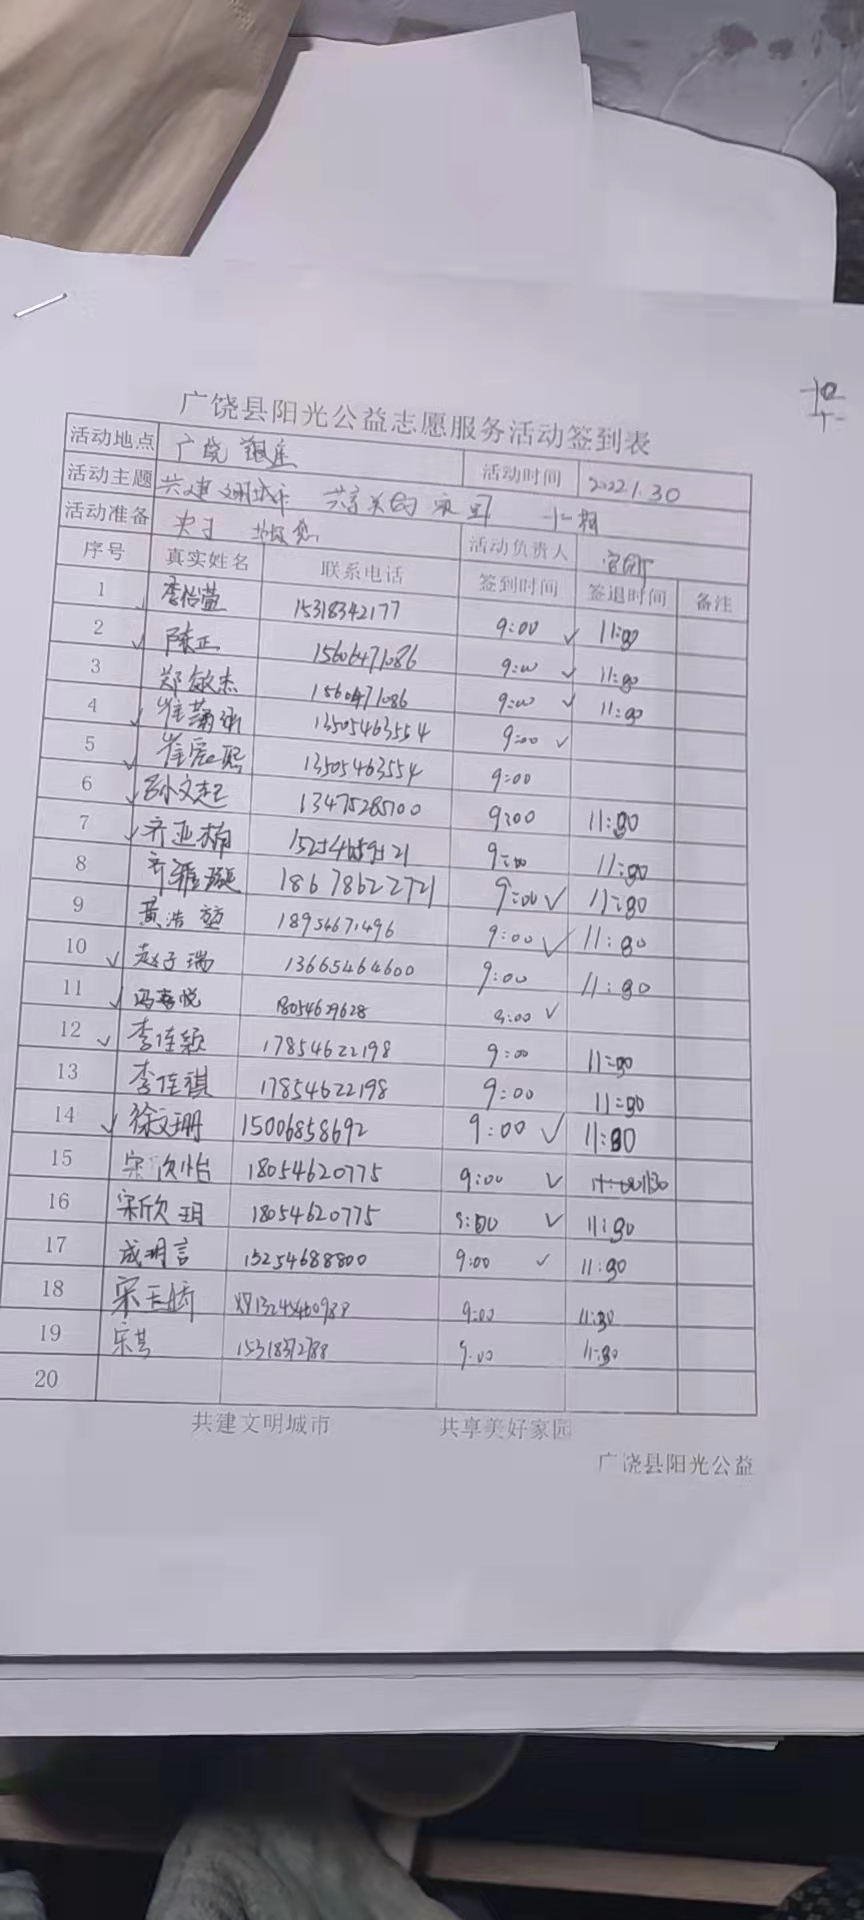 广饶县阳光公益志愿服务活动签到表
活动地点 广饶 银座 活动时间 2022.1.30
活动主题 共建文明城市 共享美好家园
活动准备 夹子 垃圾袋 活动负责人
序号 真实姓名 联系电话 签到时间 签退时间 备注
1 李怡萱 15318342177 9:00 ✓ 11:30
2 陈正 15606471086 9:00 ✓ 11:30
3 郑敏杰 1560471086 9:00 ✓ 11:30
4 崔菊 13505463554 9:00 ✓
5 崔 熙 13505463554 9:00
6 孙文起 13475285700 9:00 11:30
7 齐亚楠 9:00 11:30
8 齐雅璇 18678622721 9:00 ✓ 11:30
9 黄浩堃 18954671496 9:00 ✓ 11:30
10 赵子瑞 13665464600 9:00 11:30
11 冯喜悦 18054629628 9:00 ✓
12 李佳颖 17854622198 9:00 11:30
13 李佳祺 17854622198 9:00 11:30
14 徐文珊 15006858692 9:00 ✓ 11:30
15 宋欣怡 18054620775 9:00 ✓ 11:30
16 宋欣玥 18054620775 9:00 ✓ 11:30
17 成玥言 15254688800 9:00 ✓ 11:30
18 宋玉娇 9:00 11:30
19 宋 15318372788 9:00 11:30
20
共建文明城市 共享美好家园
广饶县阳光公益